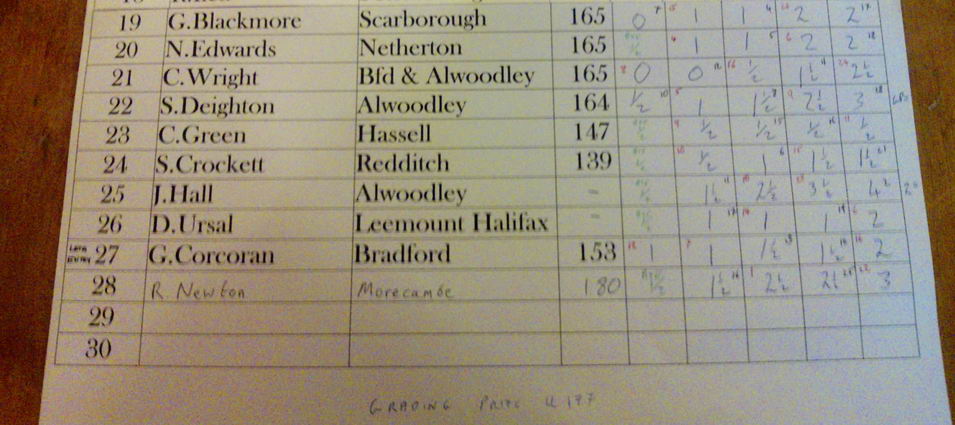 19 G.Blackmore Scarborough 165 0 7 1 1 4 2 2 17
20 N.Edwards Netherton 165 4 1 1 5 6 2 2 18
21 C.Wright Bfd & Alwoodley 165 8 0 0 12 16 ½ 1½ 4 24 2½
22 S.Deighton Alwoodley 164 ½ 10 5 1 1½ 9 2½ 3 18
23 C.Green Hassell 147 9 ½ ½ 15 ½ 16 11 ½
24 S.Crockett Redditch 139 10 ½ 1 6 15 1½ 1½ 21
25 J.Hall Alwoodley - 1½ 11 2½ 3½ 4 2
26 D.Ursal Leemount Halifax - 1 17 1 1 19 2
LATE ENTRY 27 G.Corcoran Bradford 153 18 1 7 1 1½ 1½ 2
28 R. Newton Morecambe 180 1½ 16 1 2½ 2½ 22 3
29
30
GRADING PRIZE U 177